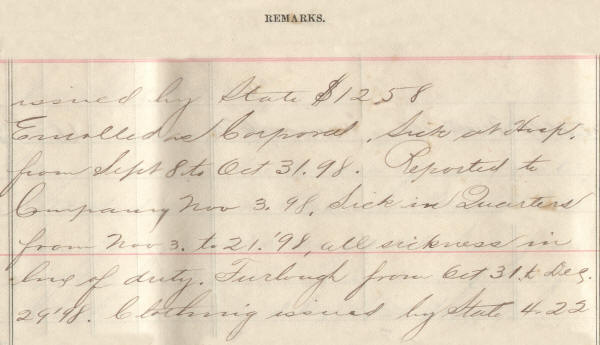 REMARKS.
issued by State $12 58
Enrolled as Corporal. Sick at Hosp.
from Sept 8 to Oct 31. 98. Reported to
Company Nov 3. 98. Sick in Quarters
from Nov 3. to 21. '98, all sickness in
line of duty. Furlough from Oct 31. to Dec.
29 '98. Clothing issued by State 4.22